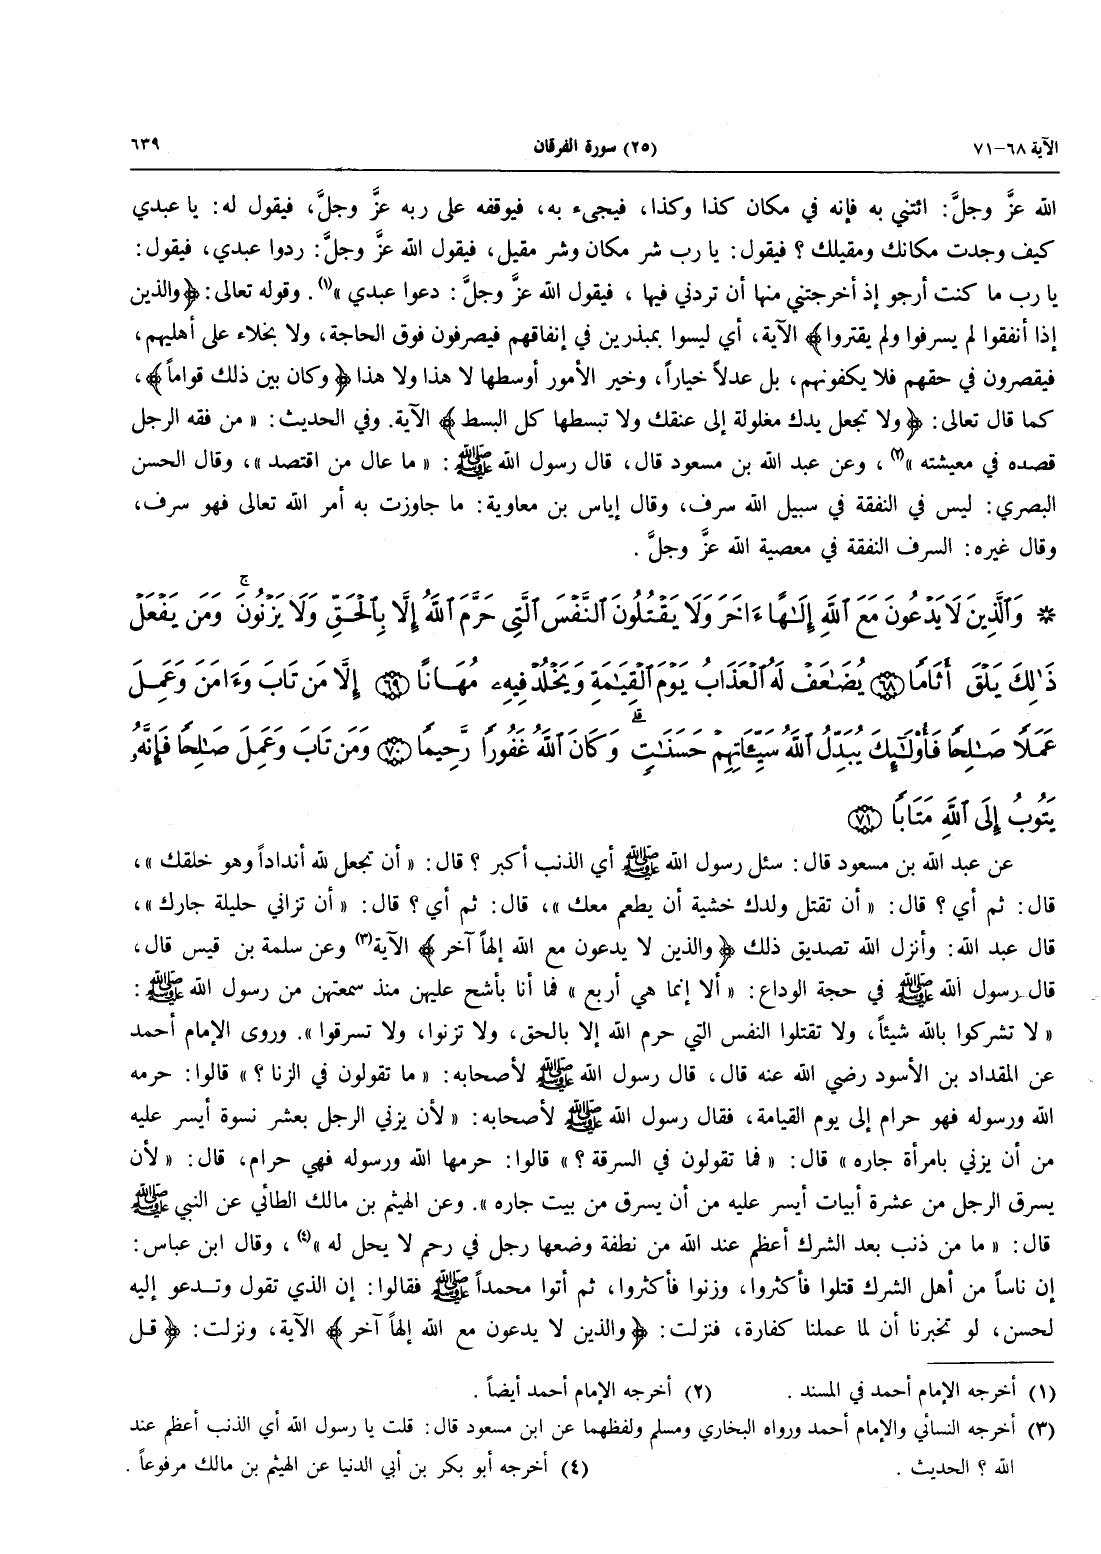 الآية ٦٨-٧١ (٢٥) سورة الفرقان ٦٣٩
الله عزَّ وجلَّ: ائتني به فإنه في مكان كذا وكذا، فيجيء به، فيوقفه على ربه عزَّ وجلَّ، فيقول له: يا عبدي
كيف وجدت مكانك ومقيلك ؟ فيقول: يا رب شر مكان وشر مقيل، فيقول الله عزَّ وجلَّ: ردوا عبدي، فيقول:
يا رب ما كنت أرجو إذ أخرجتني منها أن تردني فيها ، فيقول الله عزَّ وجلَّ: دعوا عبدي »(١). وقوله تعالى: ﴿والذين
إذا أنفقوا لم يسرفوا ولم يقتروا﴾ الآية، أي ليسوا بمبذرين في إنفاقهم فيصرفون فوق الحاجة، ولا بخلاء على أهليهم،
فيقصرون في حقهم فلا يكفونهم، بل عدلاً خياراً، وخير الأمور أوسطها لا هذا ولا هذا ﴿وكان بين ذلك قواماً﴾،
كما قال تعالى: ﴿ولا تجعل يدك مغلولة إلى عنقك ولا تبسطها كل البسط﴾ الآية. وفي الحديث: « من فقه الرجل
قصده في معيشته »(٢)، وعن عبد الله بن مسعود قال، قال رسول الله ﷺ: « ما عال من اقتصد »، وقال الحسن
البصري: ليس في النفقة في سبيل الله سرف، وقال إياس بن معاوية: ما جاوزت به أمر الله تعالى فهو سرف،
وقال غيره: السرف النفقة في معصية الله عزَّ وجلَّ .
* وَٱلَّذِينَ لَا يَدْعُونَ مَعَ ٱللَّهِ إِلَٰهًا ءَاخَرَ وَلَا يَقْتُلُونَ ٱلنَّفْسَ ٱلَّتِى حَرَّمَ ٱللَّهُ إِلَّا بِٱلْحَقِّ وَلَا يَزْنُونَ ۚ وَمَن يَفْعَلْ
ذَٰلِكَ يَلْقَ أَثَامًا ۝٦٨ يُضَٰعَفْ لَهُ ٱلْعَذَابُ يَوْمَ ٱلْقِيَٰمَةِ وَيَخْلُدْ فِيهِۦ مُهَانًا ۝٦٩ إِلَّا مَن تَابَ وَءَامَنَ وَعَمِلَ
عَمَلًا صَٰلِحًا فَأُوْلَٰٓئِكَ يُبَدِّلُ ٱللَّهُ سَيِّـَٔاتِهِمْ حَسَنَٰتٍ ۗ وَكَانَ ٱللَّهُ غَفُورًا رَّحِيمًا ۝٧٠ وَمَن تَابَ وَعَمِلَ صَٰلِحًا فَإِنَّهُۥ
يَتُوبُ إِلَى ٱللَّهِ مَتَابًا ۝٧١
عن عبد الله بن مسعود قال: سئل رسول الله ﷺ أي الذنب أكبر ؟ قال: « أن تجعل لله أنداداً وهو خلقك »،
قال: ثم أي ؟ قال: « أن تقتل ولدك خشية أن يطعم معك »، قال: ثم أي ؟ قال: « أن تزاني حليلة جارك »،
قال عبد الله: وأنزل الله تصديق ذلك ﴿والذين لا يدعون مع الله إلهاً آخر﴾ الآية(٣) وعن سلمة بن قيس قال،
قال رسول الله ﷺ في حجة الوداع: « ألا إنما هي أربع » فما أنا بأشح عليهن منذ سمعتهن من رسول الله ﷺ:
« لا تشركوا بالله شيئاً، ولا تقتلوا النفس التي حرم الله إلا بالحق، ولا تزنوا، ولا تسرقوا ». وروى الإمام أحمد
عن المقداد بن الأسود رضي الله عنه قال، قال رسول الله ﷺ لأصحابه: « ما تقولون في الزنا ؟ » قالوا: حرمه
الله ورسوله فهو حرام إلى يوم القيامة، فقال رسول الله ﷺ لأصحابه: « لأن يزني الرجل بعشر نسوة أيسر عليه
من أن يزني بامرأة جاره » قال: « فما تقولون في السرقة ؟ » قالوا: حرمها الله ورسوله فهي حرام، قال: « لأن
يسرق الرجل من عشرة أبيات أيسر عليه من أن يسرق من بيت جاره ». وعن الهيثم بن مالك الطائي عن النبي ﷺ
قال: « ما من ذنب بعد الشرك أعظم عند الله من نطفة وضعها رجل في رحم لا يحل له »(٤)، وقال ابن عباس:
إن ناساً من أهل الشرك قتلوا فأكثروا، وزنوا فأكثروا، ثم أتوا محمداً ﷺ فقالوا: إن الذي تقول وتدعو إليه
لحسن، لو تخبرنا أن لما عملنا كفارة، فنزلت: ﴿والذين لا يدعون مع الله إلهاً آخر﴾ الآية، ونزلت: ﴿قل
(١) أخرجه الإمام أحمد في المسند . (٢) أخرجه الإمام أحمد أيضاً .
(٣) أخرجه النسائي والإمام أحمد ورواه البخاري ومسلم ولفظهما عن ابن مسعود قال: قلت يا رسول الله أي الذنب أعظم عند
الله ؟ الحديث . (٤) أخرجه أبو بكر بن أبي الدنيا عن الهيثم بن مالك مرفوعاً .